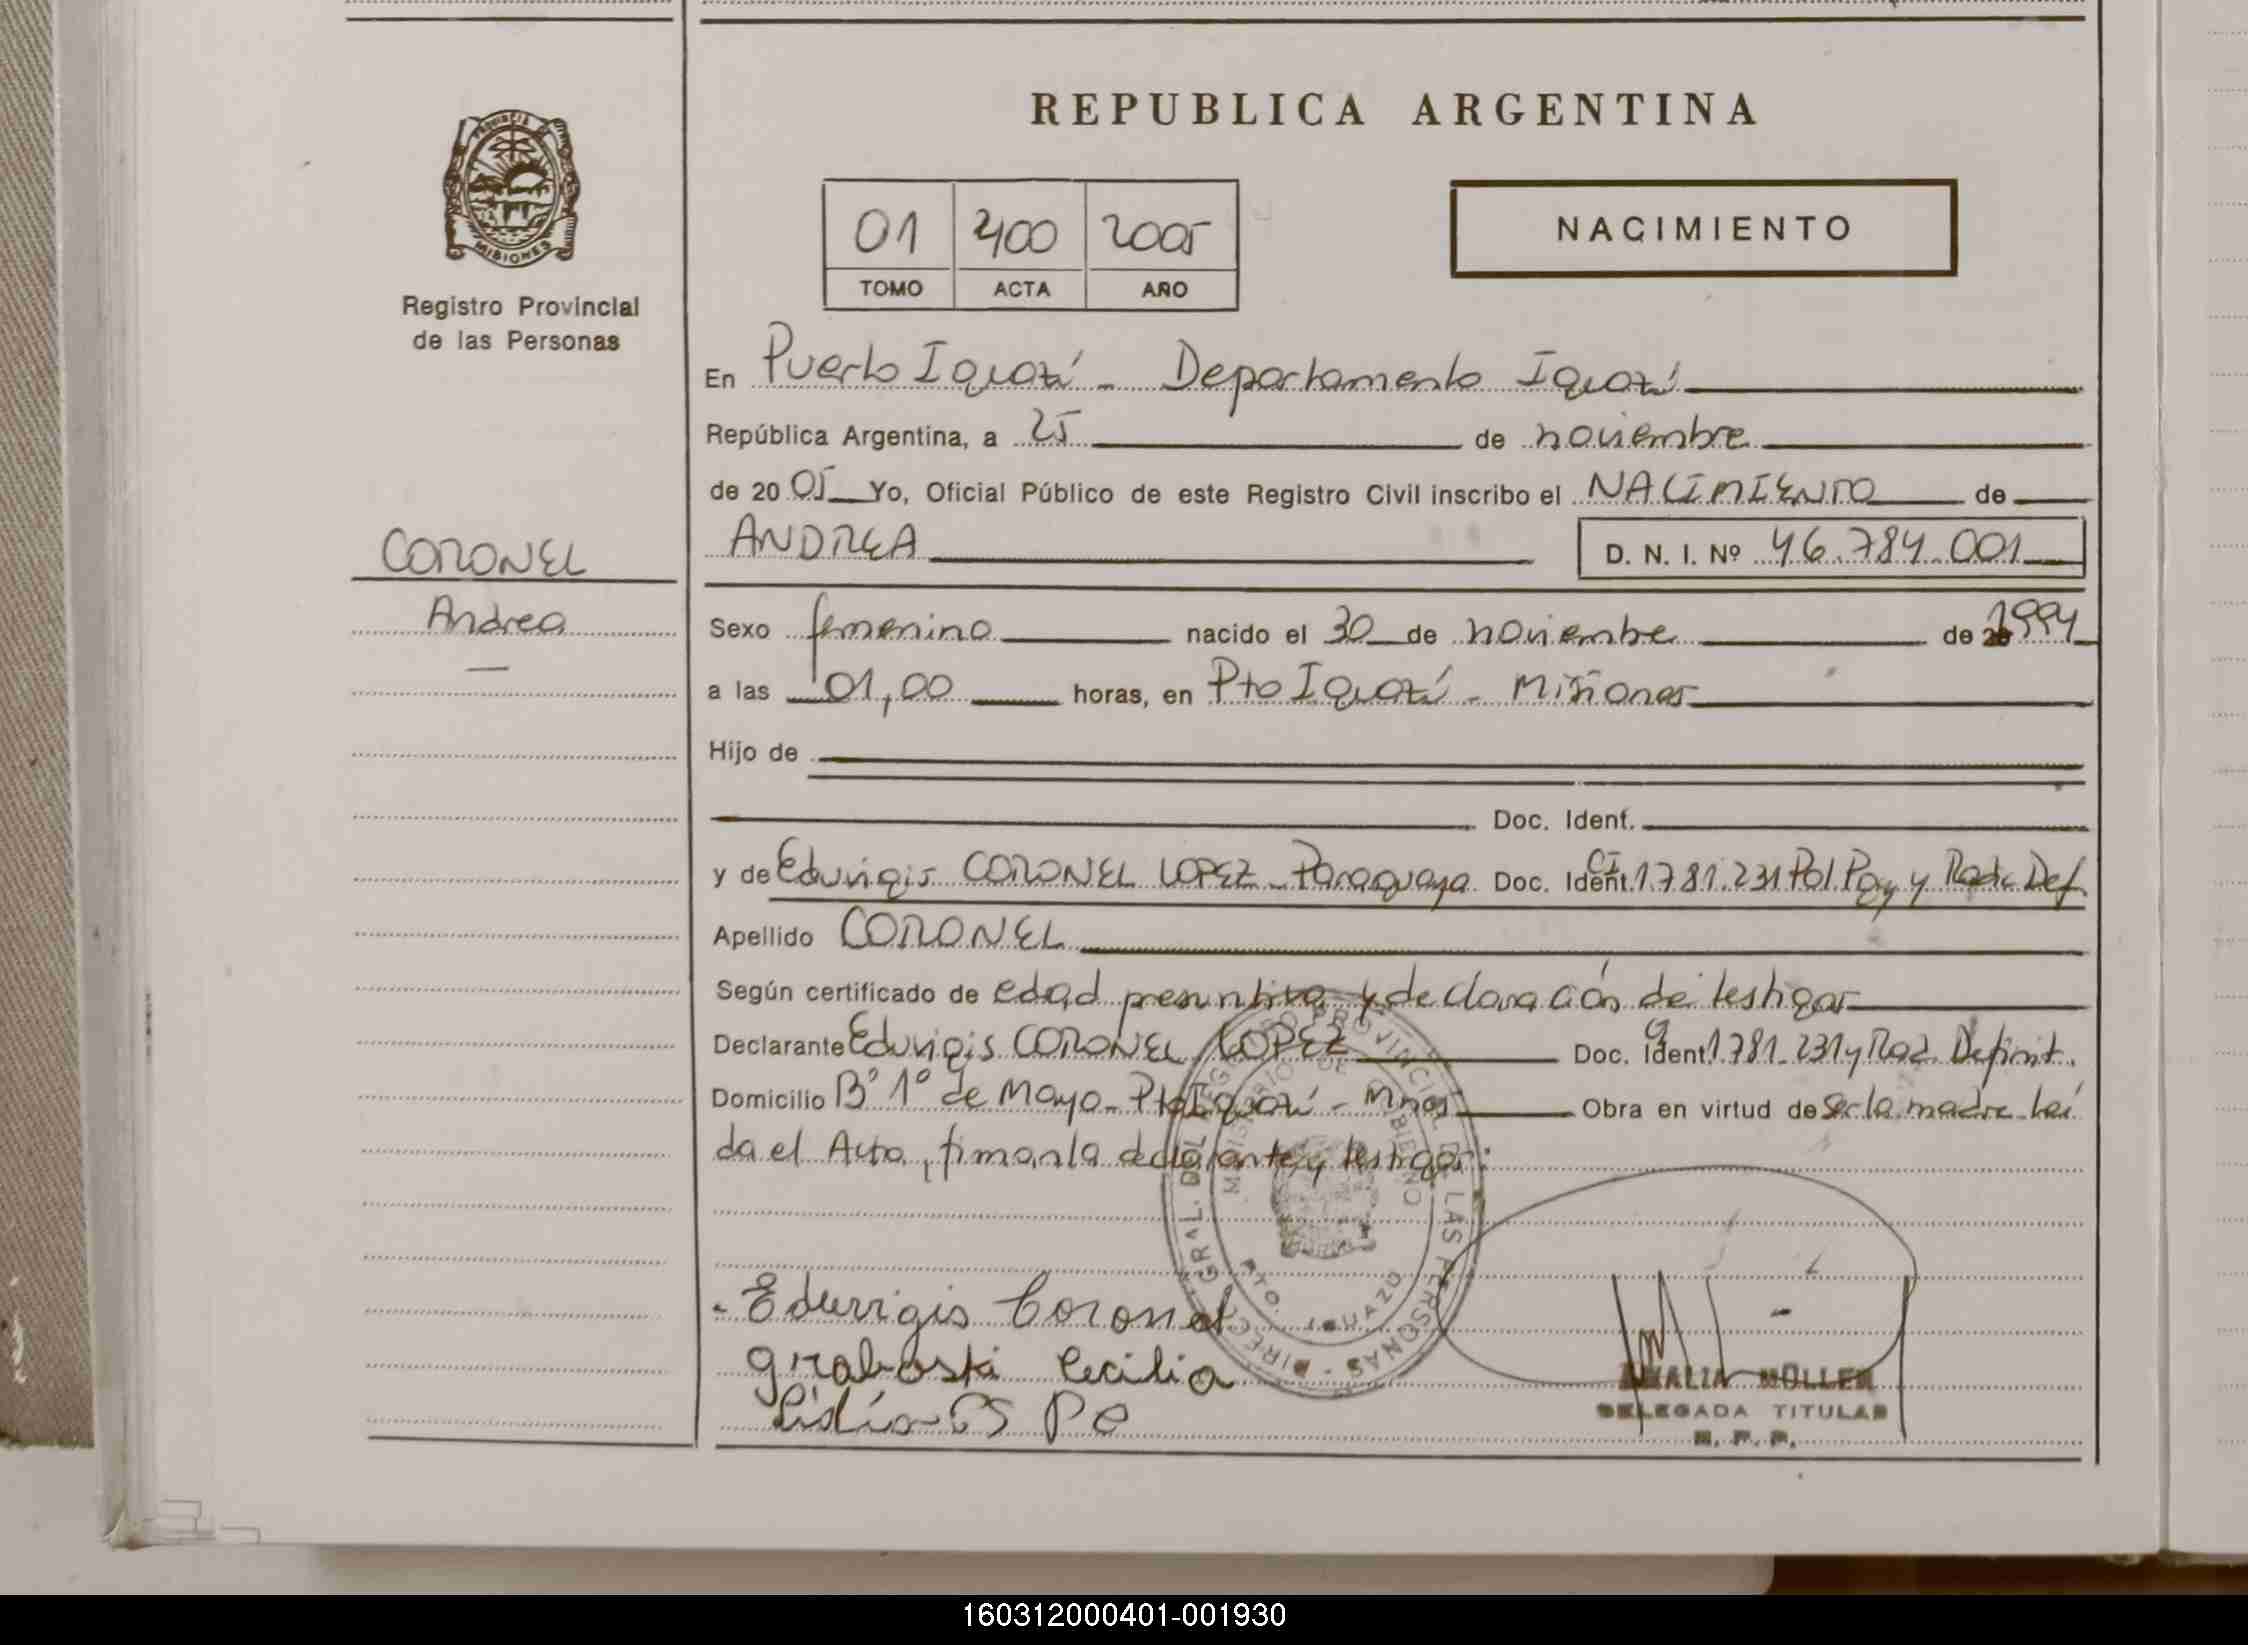 REPUBLICA ARGENTINA
PROVINCIA DE
MISIONES
Registro Provincial
de las Personas
01 400 2005
TOMO ACTA AÑO
NACIMIENTO
En Puerto Iguazú - Departamento Iguazú
República Argentina, a 25 de noviembre
de 20 05 Yo, Oficial Público de este Registro Civil inscribo el NACIMIENTO de
CORONEL
Andrea
ANDREA D. N. I. Nº 46.784.001
Sexo femenino nacido el 30 de noviembre de 1994
a las 01,00 horas, en Pto Iguazú - Misiones
Hijo de
Doc. Ident.
y de Eduvigis CORONEL LOPEZ - Paraguaya Doc. Ident. CI 1.781.231 Pol. Pgy y Radic Def.
Apellido CORONEL
Según certificado de edad presuntiva y declaración de testigos
Declarante Eduvigis CORONEL LOPEZ Doc. Ident. CI 1.781.231 y Rad. Definit.
Domicilio Bº 1º de Mayo - Pto Iguazú - Mnes Obra en virtud de ser la madre. Leí
da el Acta, firman la declarante y testigos:
DIRECC. GRAL. DEL REGISTRO PROVINCIAL DE LAS PERSONAS
MINISTERIO DE GOBIERNO
PTO. IGUAZU
Eduvigis Coronel
Graboski Cecilia
AMALIA MÜLLER
DELEGADA TITULAR
R. P. P.
160312000401-001930